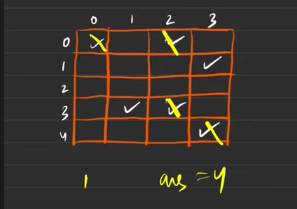 0 1 2 3
0
1
2
3
4
1 ans = 4